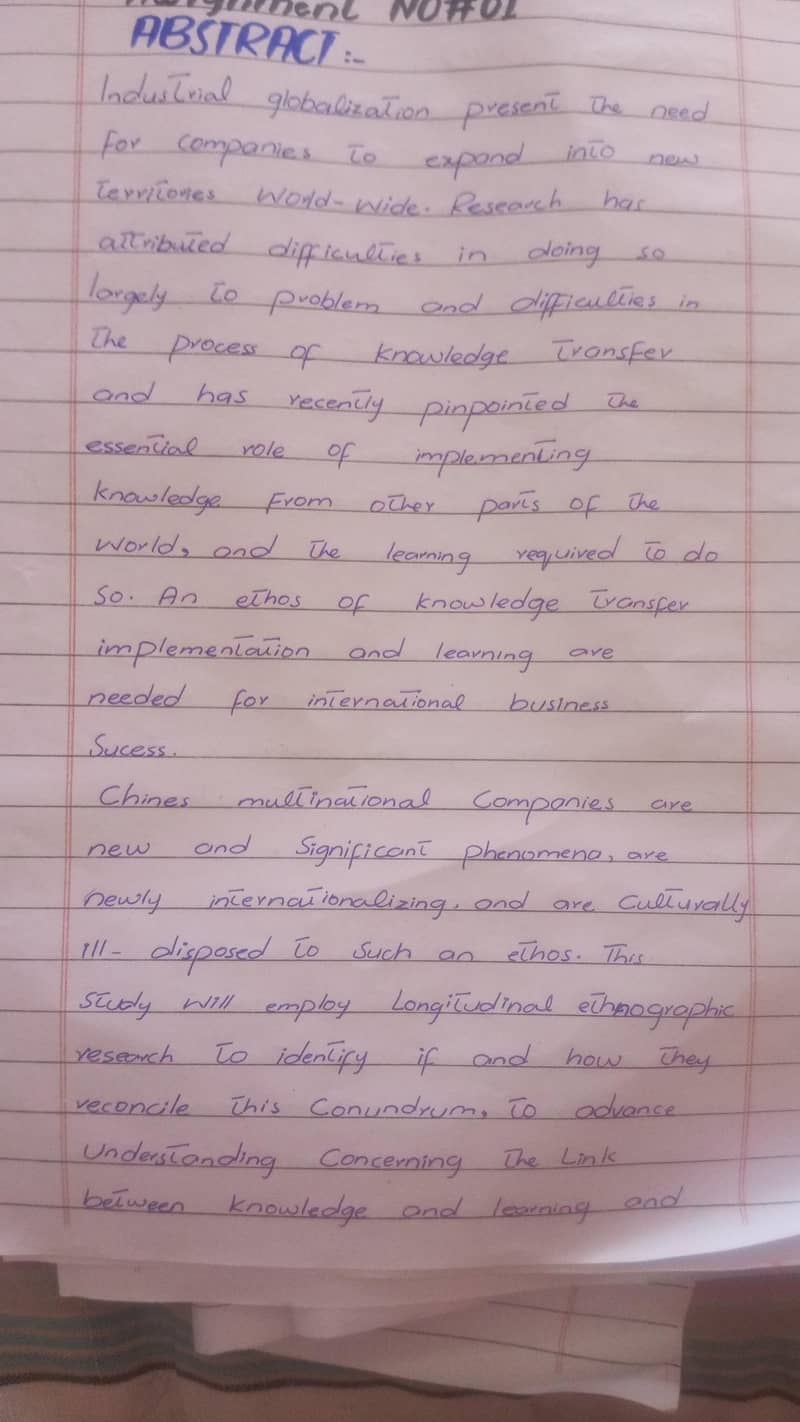 Assignment NO#01
ABSTRACT:-
Industrial globalization present the need
for companies to expand into new
territories World-Wide. Research has
attributed difficulties in doing so
largely to problem and difficulties in
the process of knowledge transfer
and has recently pinpointed the
essential role of implementing
knowledge from other parts of the
world, and the learning required to do
so. An ethos of knowledge transfer
implementation and learning are
needed for international business
Sucess.
Chines multinational Companies are
new and Significant phenomena, are
newly internationalizing, and are Culturally
ill-disposed to such an ethos. This
study will employ Longitudinal ethnographic
research to identify if and how they
reconcile this Conundrum, to advance
Understanding Concerning the Link
between knowledge and learning and